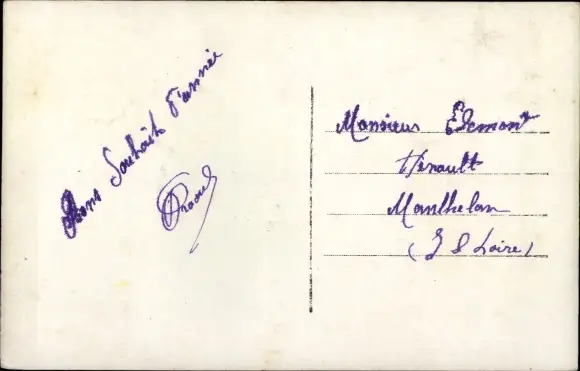 Bons Souhaits d'année
Raoul
Monsieur Edmont
Hérault
Manthelan
(I & Loire)